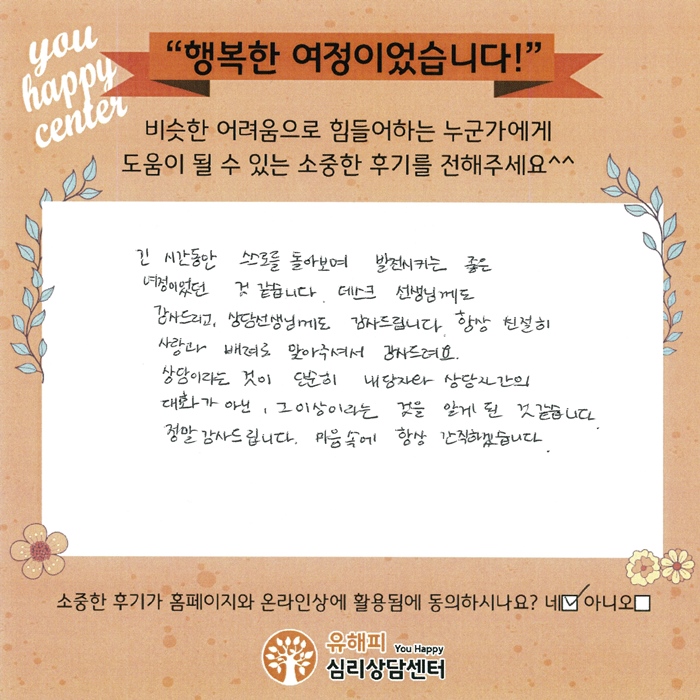 you
happy
center
“행복한 여정이었습니다!”
비슷한 어려움으로 힘들어하는 누군가에게
도움이 될 수 있는 소중한 후기를 전해주세요^^
긴 시간동안 스스로를 돌아보며 발전시키는 좋은
여정이었던 것 같습니다. 데스크 선생님께도
감사드리고, 상담선생님께도 감사드립니다. 항상 친절히
사랑과 배려로 맞아주셔서 감사드려요.
상담이라는 것이 단순히 내담자와 상담자간의
대화가 아닌, 그 이상이라는 것을 알게 된 것 같습니다.
정말 감사드립니다. 마음 속에 항상 간직하겠습니다.
소중한 후기가 홈페이지와 온라인상에 활용됨에 동의하시나요? 네☑ 아니오☐
유해피 You Happy
심리상담센터